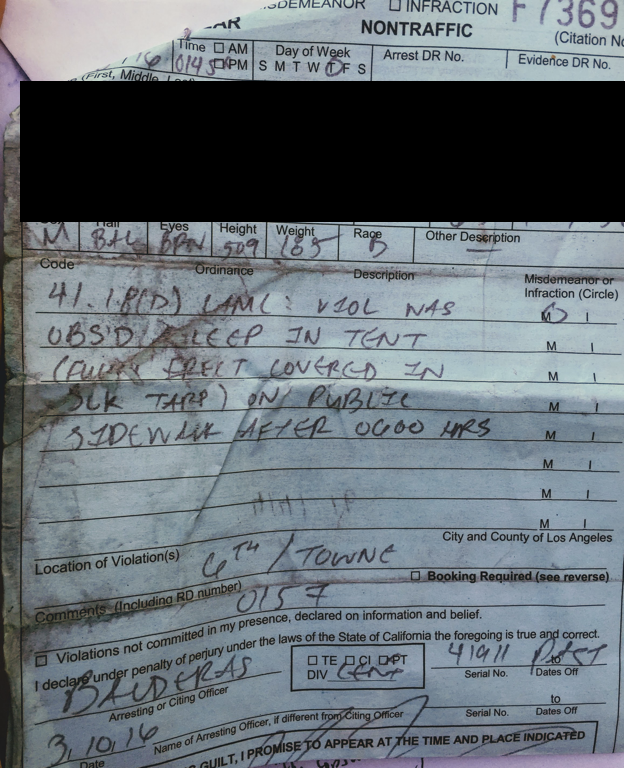 MISDEMEANOR ☐ INFRACTION F7369
NONTRAFFIC (Citation No
Time ☐ AM ☐ PM Day of Week Arrest DR No. Evidence DR No.
0145 S M T W T F S
(First, Middle,
Hair Eyes Height Weight Race Other Description
M BAL BRN 509 185 B
Code Ordinance Description Misdemeanor or
Infraction (Circle)
41.18(D) LAMC: VIOL WAS M I
OBS'D ASLEEP IN TENT M I
(FULLY ERECT COVERED IN M I
BLK TARP) ON PUBLIC M I
SIDEWALK AFTER 0600 HRS M I
M I
M I
M I
City and County of Los Angeles
Location of Violation(s) 6TH / TOWNE
☐ Booking Required (see reverse)
Comments (Including RD number) 0157
☐ Violations not committed in my presence, declared on information and belief.
I declare under penalty of perjury under the laws of the State of California the foregoing is true and correct.
BALDERAS ☐ TE ☐ CI ☐ PT 41911 to
Arresting or Citing Officer DIV CENT Serial No. Dates Off
3,10,16 to
Date Name of Arresting Officer, if different from Citing Officer Serial No. Dates Off
GUILT, I PROMISE TO APPEAR AT THE TIME AND PLACE INDICATED